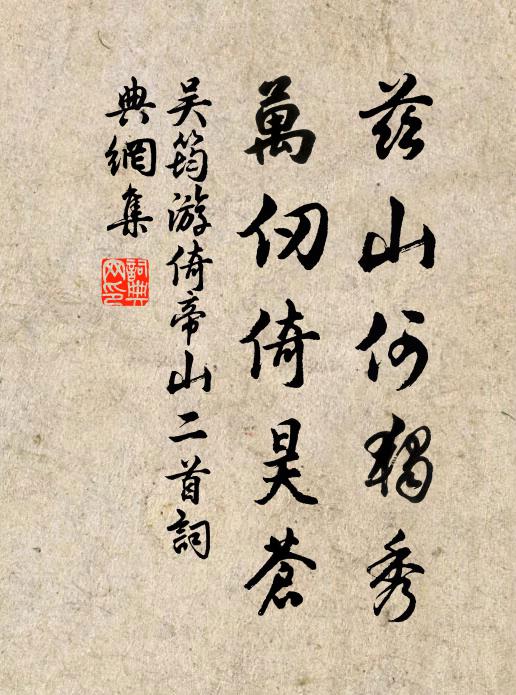 茲山何獨秀
萬仞倚昊蒼
吴筠游倚帝山二首詞
典網集
詞典
网印